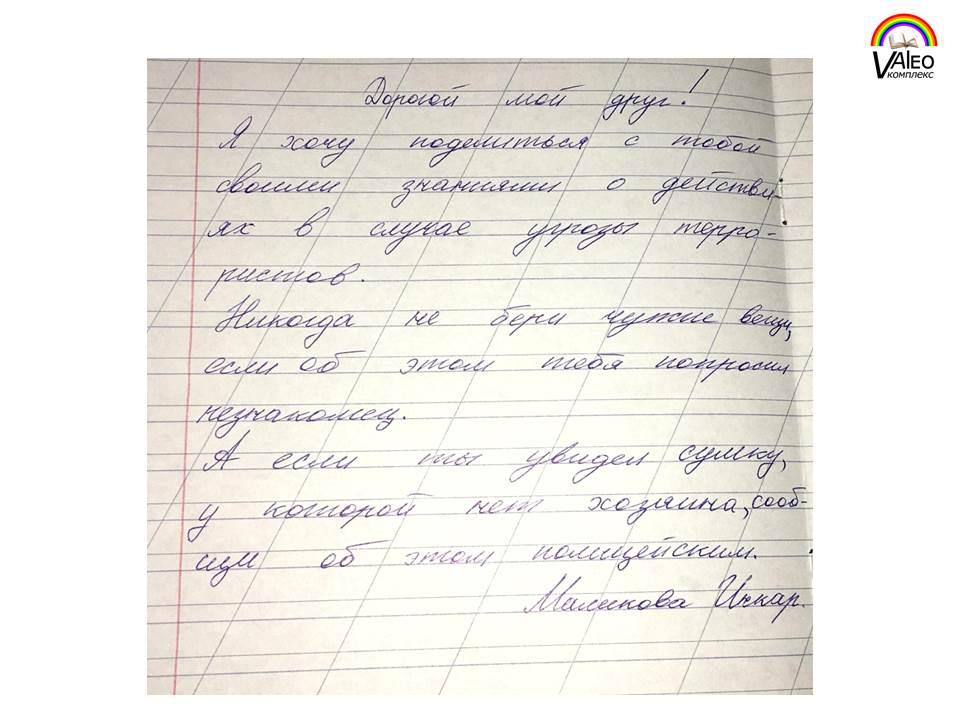 VALEO
КОМПЛЕКС
Дорогой мой друг!
Я хочу поделиться с тобой
своими знаниями о действи-
ях в случае угрозы терро-
ристов.
Никогда не бери чужие вещи,
если об этом тебя попросил
незнакомец.
А если ты увидел сумку,
у которой нет хозяина, сооб-
щи об этом полицейским.
Маликова Инкар.